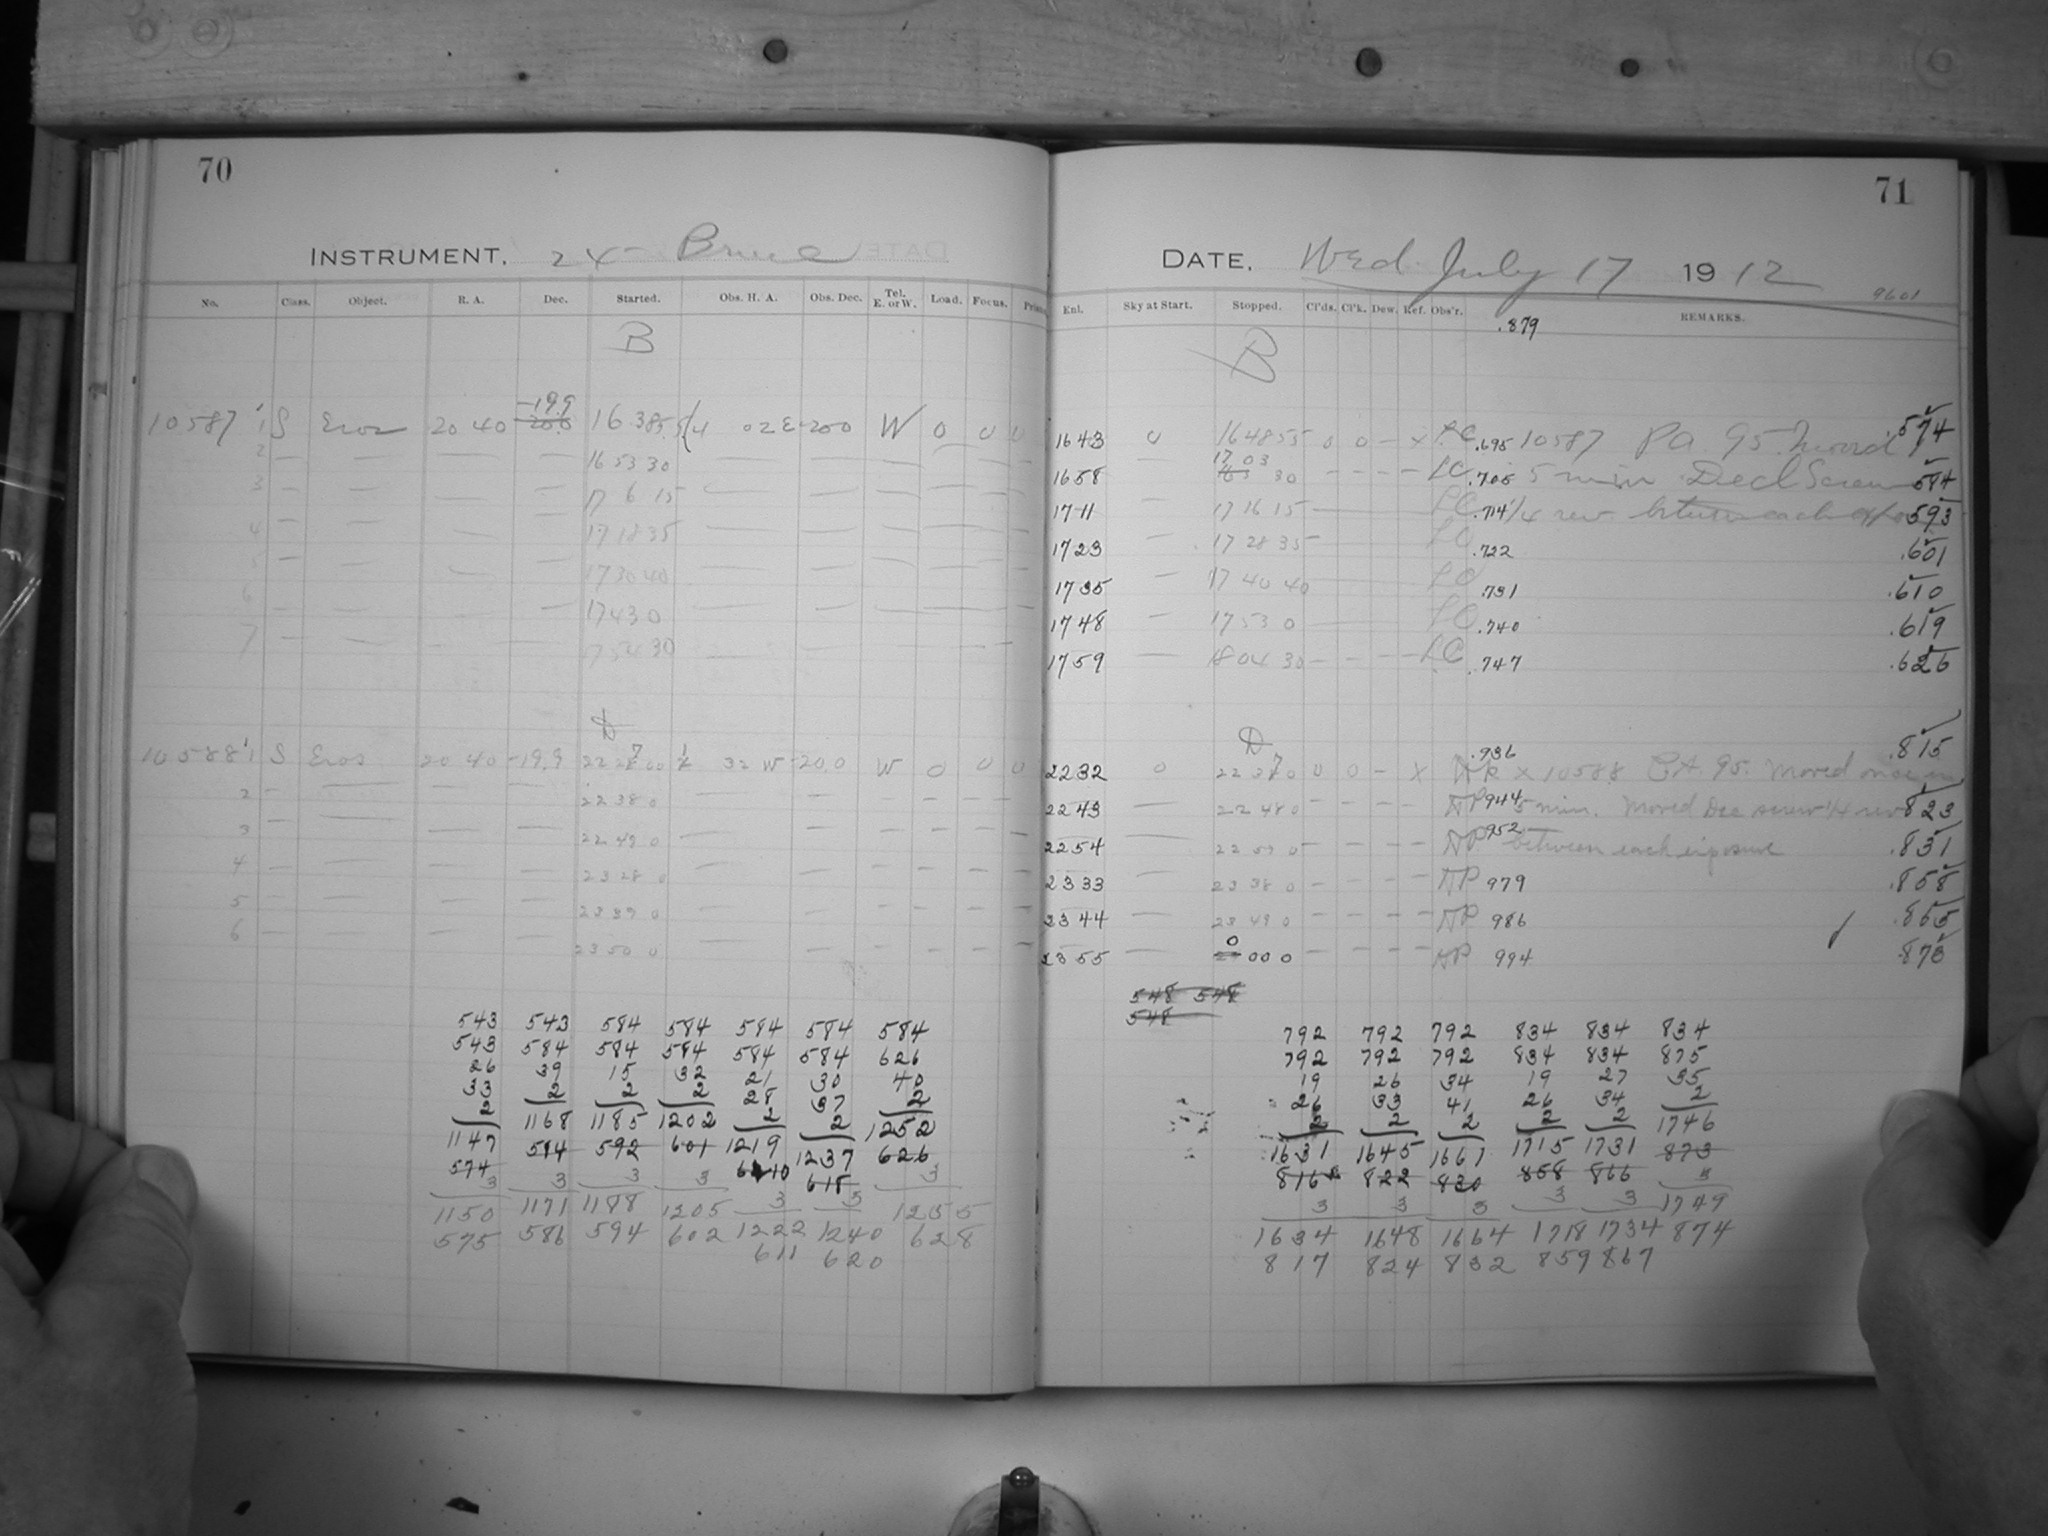 70
INSTRUMENT. 24- Bruce
No. Class. Object. R. A. Dec. Started. Obs. H. A. Obs. Dec. Tel. E. or W. Load. Focus.
B
-19.9
10587 1 S Eros 20 40 16 38 55 02 E -200 W 0 0 0
2 — — — — 16 53 30 — — — — — —
3 — — — — 17 6 15 — — — — — —
4 — — — — 17 18 35 — — — — — —
5 — — — — 17 30 40 — — — — — —
6 — — — — 17 43 0 — — — — — —
7 — — — — 17 54 30 — — — — — —
D
10588 1 S Eros 20 40 -19.9 22 27 00 32 W -20.0 W 0 0 0
2 — — — — 22 38 0 — — — — — —
3 — — — — 22 49 0 — — — — — —
4 — — — — 23 28 0 — — — — — —
5 — — — — 23 39 0 — — — — — —
6 — — — — 23 50 0 — — — — — —
543 543 584 584 584 584 584
543 584 584 584 584 584 626
26 39 15 32 21 30 40
33 2 2 2 28 37 2
2 1168 1185 1202 2 2 1252
1147 584 592 601 1219 1237 626
574 3 3 3 610 618 3
3 1171 1188 1205 3 3 1255
1150 586 594 602 1222 1240 628
575 611 620
71
DATE. Wed. July 17 1912
9601
Enl. Sky at Start. Stopped. Cl'ds. Cl'k. Dew. Ref. Obs'r. REMARKS.
.879
B
1643 0 16 48 55 0 0 - x LC .695 10587 P.A. 95. Moved .574
1658 — 17 03 30 - - - - LC .705 5 min Decl Screw .584
1711 — 17 16 15 LC .714 1/4 rev. between each expo .593
1723 — 17 28 35 LC .722 .601
1735 — 17 40 40 LC .731 .610
1748 — 17 53 0 LC .740 .619
1759 — 18 04 30 - - - - LC .747 .626
D
.936 .815
2232 0 22 37 0 0 0 - x AP x 10588 P.A. 95. Moved once in
2243 — 22 48 0 - - - - AP 944 5 min. Moved Dec screw 1/4 rev 823
2254 — 22 59 0 - - - - AP 952 between each exposure .831
2333 — 23 38 0 - - - - AP 979 .858
2344 — 23 49 0 - - - - AP 986 .865
2355 — 0 00 0 - - - - AP 994 .873
548 548
548
792 792 792 834 834 834
792 792 792 834 834 875
19 26 34 19 27 35
26 33 41 26 34 2
2 2 2 2 2 1746
1631 1645 1661 1715 1731 873
816 822 830 858 866 3
3 3 3 3 3 1749
1634 1648 1664 1718 1734 874
817 824 832 859 867